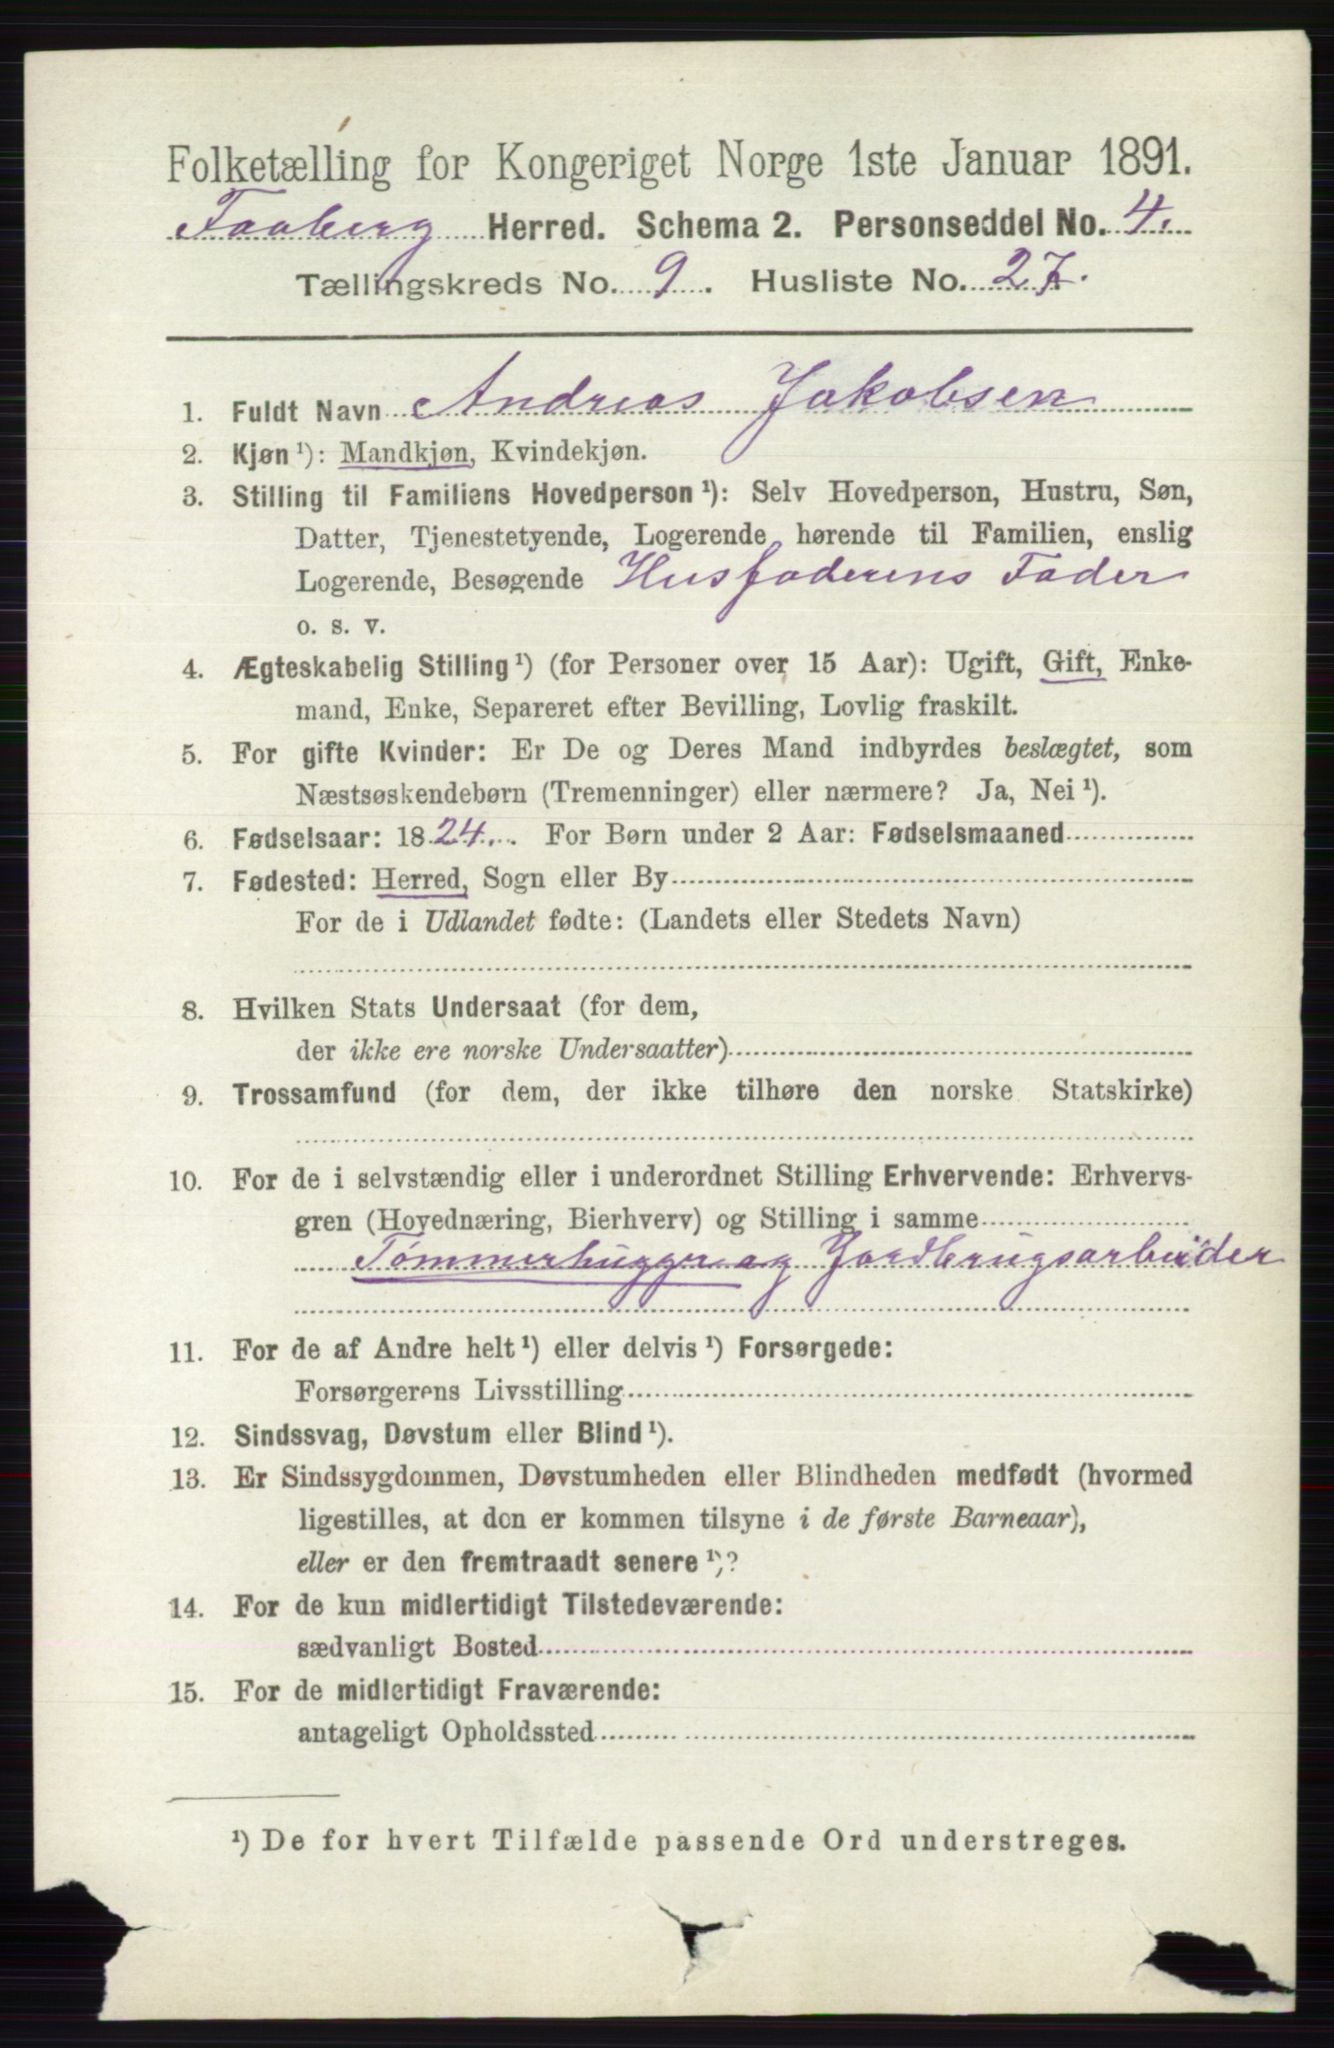 Folketælling for Kongeriget Norge 1ste Januar 1891.
Faaberg Herred. Schema 2. Personseddel No. 4.
Tællingskreds No. 9. Husliste No. 27.
1. Fuldt Navn Andreas Jakobsen
2. Kjøn¹): Mandkjøn, Kvindekjøn.
3. Stilling til Familiens Hovedperson¹): Selv Hovedperson, Hustru, Søn,
Datter, Tjenestetyende, Logerende hørende til Familien, enslig
Logerende, Besøgende Husfaderens Fader
o. s. v.
4. Ægteskabelig Stilling¹) (for Personer over 15 Aar): Ugift, Gift, Enke-
mand, Enke, Separeret efter Bevilling, Lovlig fraskilt.
5. For gifte Kvinder: Er De og Deres Mand indbyrdes beslægtet, som
Næstsøskendebørn (Tremenninger) eller nærmere? Ja, Nei¹).
6. Fødselsaar: 1824. For Børn under 2 Aar: Fødselsmaaned
7. Fødested: Herred, Sogn eller By
For de i Udlandet fødte: (Landets eller Stedets Navn)
8. Hvilken Stats Undersaat (for dem,
der ikke ere norske Undersaatter)
9. Trossamfund (for dem, der ikke tilhøre den norske Statskirke)
10. For de i selvstændig eller i underordnet Stilling Erhvervende: Erhvervs-
gren (Hovednæring, Bierhverv) og Stilling i samme
Tømmerhugger og Jordbrugsarbeider
11. For de af Andre helt¹) eller delvis¹) Forsørgede:
Forsørgerens Livsstilling
12. Sindssvag, Døvstum eller Blind¹).
13. Er Sindssygdommen, Døvstumheden eller Blindheden medfødt (hvormed
ligestilles, at den er kommen tilsyne i de første Barneaar),
eller er den fremtraadt senere¹)?
14. For de kun midlertidigt Tilstedeværende:
sædvanligt Bosted
15. For de midlertidigt Fraværende:
antageligt Opholdssted
¹) De for hvert Tilfælde passende Ord understreges.